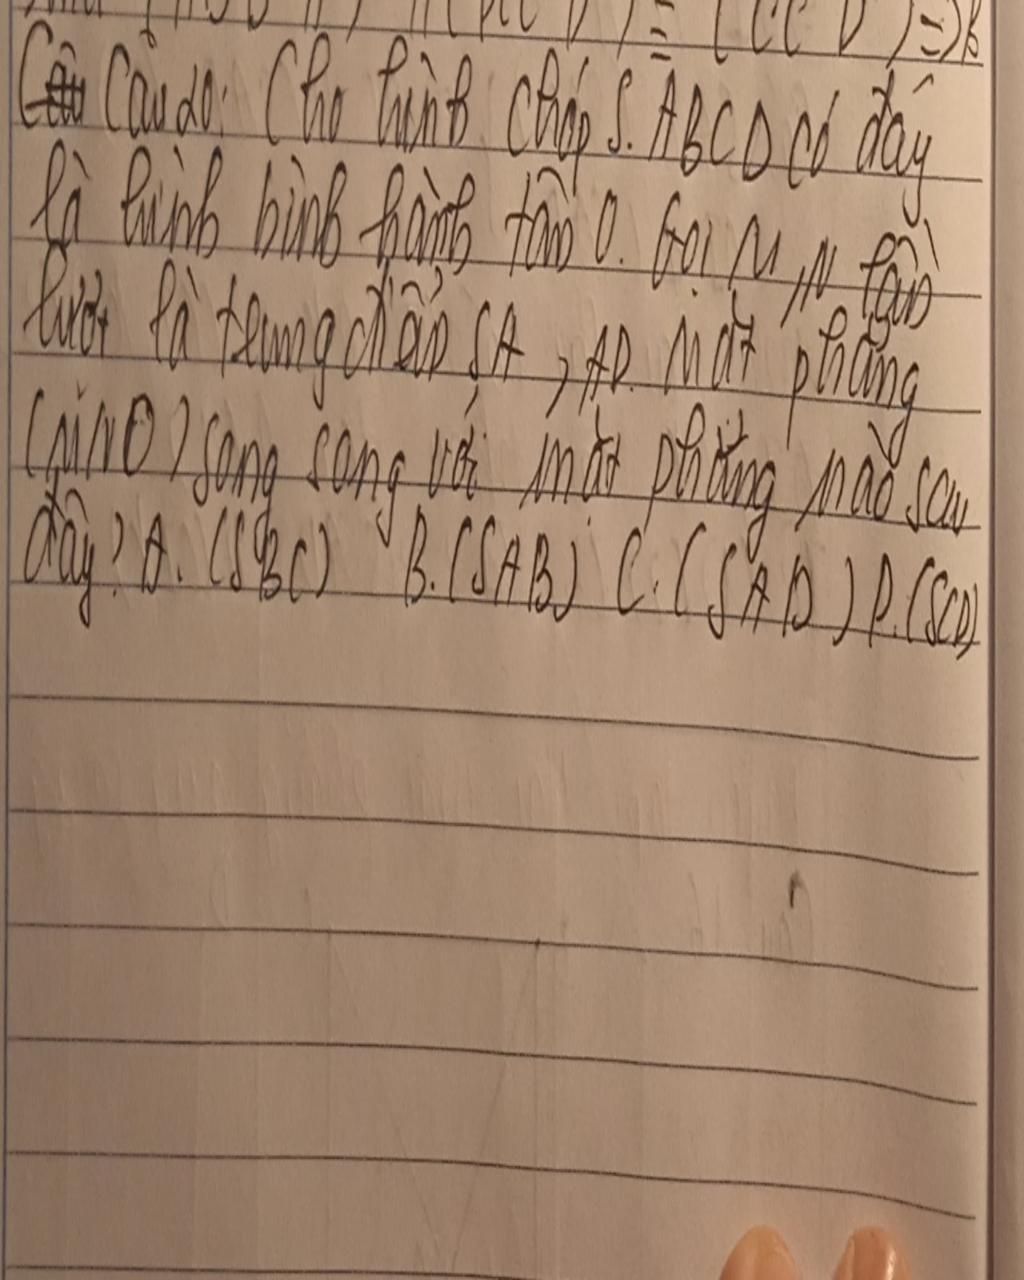 Câu 20: Cho hình chóp S.ABCD có đáy
là hình bình hành tâm O. Gọi M, N lần
lượt là trung điểm SA, AD. Mặt phẳng
(MNO) song song với mặt phẳng nào sau
đây? A. (SBC) B. (SAB) C. (SAD) D. (SCD)